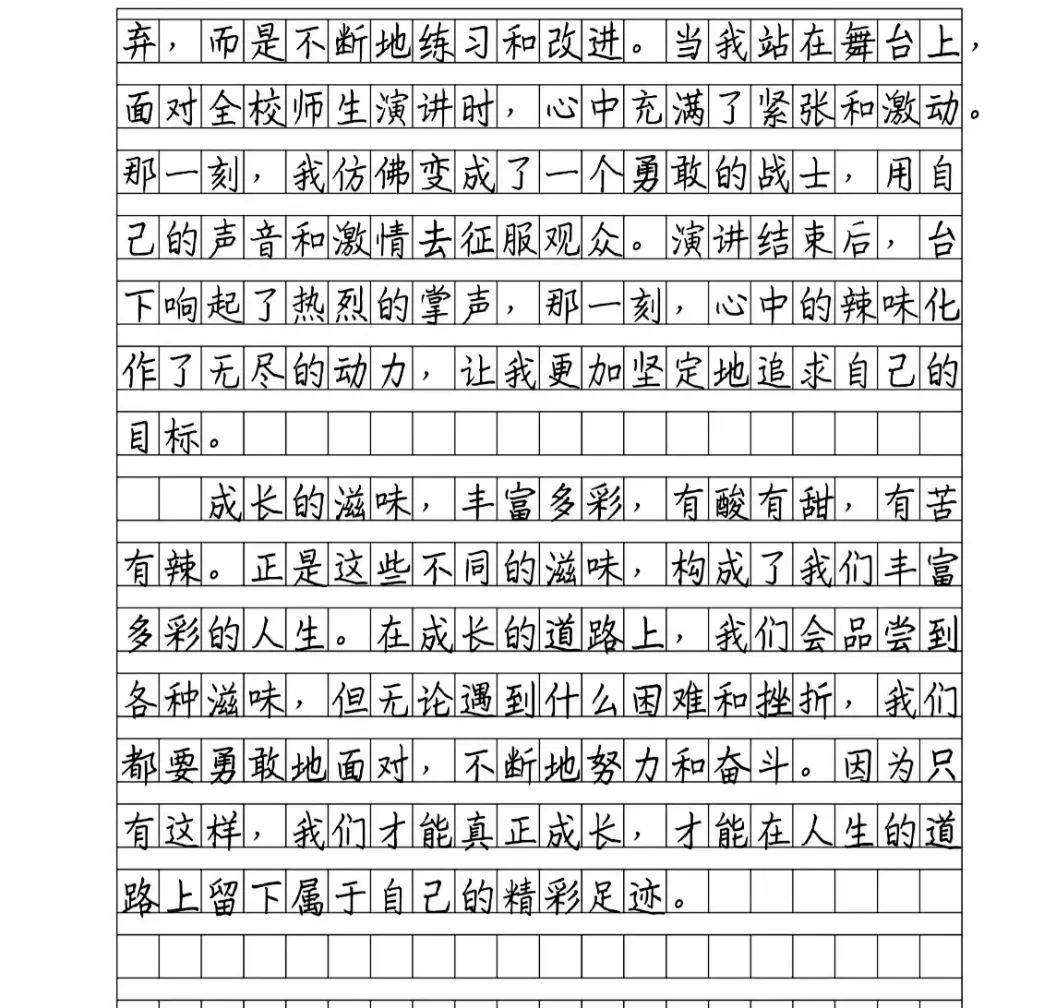 弃，而是不断地练习和改进。当我站在舞台上，
面对全校师生演讲时，心中充满了紧张和激动。
那一刻，我仿佛变成了一个勇敢的战士，用自
己的声音和激情去征服观众。演讲结束后，台
下响起了热烈的掌声，那一刻，心中的辣味化
作了无尽的动力，让我更加坚定地追求自己的
目标。
成长的滋味，丰富多彩，有酸有甜，有苦
有辣。正是这些不同的滋味，构成了我们丰富
多彩的人生。在成长的道路上，我们会品尝到
各种滋味，但无论遇到什么困难和挫折，我们
都要勇敢地面对，不断地努力和奋斗。因为只
有这样，我们才能真正成长，才能在人生的道
路上留下属于自己的精彩足迹。